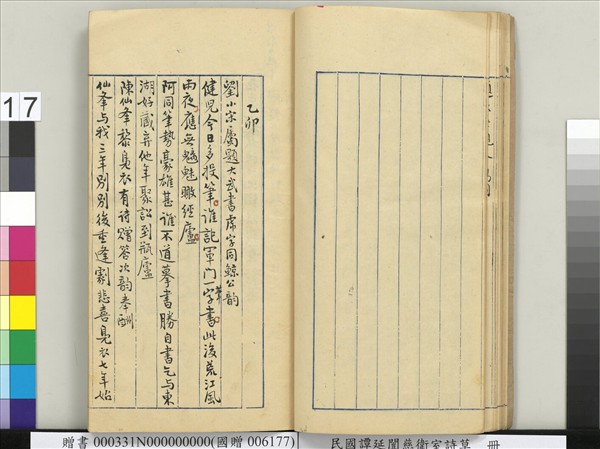 乙卯
劉小宗屬題大武書席字同鯨公韵
健兒今日多投筆誰託軍门一字書此後荒江風
雨夜應無魑魅瞰經廬
阿同筆勢豪雄甚誰不道摹書勝自書乞与東
湖好藏弆他年聚訟到瓶廬
陳仙峯黎鳧衣有诗贈答次韵奉酬
仙峯与我三年别别後重逢劇悲喜鳧衣七年始
17
贈書 000331N000000000(國贈 006177)
民國譚延闓慈衛室詩草 冊